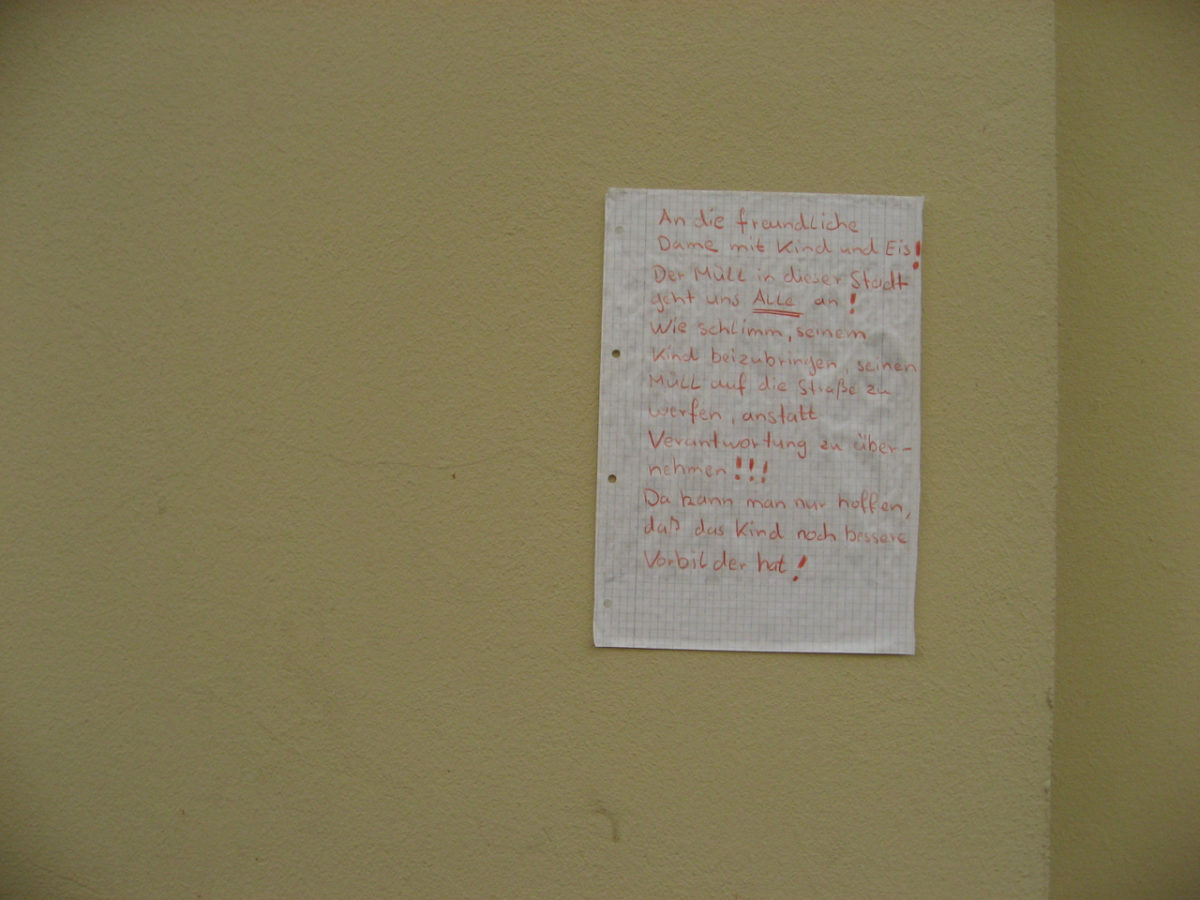 An die freundliche
Dame mit Kind und Eis!
Der Müll in dieser Stadt
geht uns Alle an!
Wie schlimm, seinem
Kind beizubringen, seinen
Müll auf die Straße zu
werfen, anstatt
Verantwortung zu über-
nehmen!!!
Da kann man nur hoffen,
daß das Kind noch bessere
Vorbilder hat!